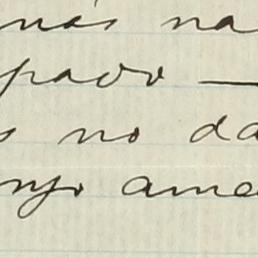 más na
pado —
s no da
njo ame